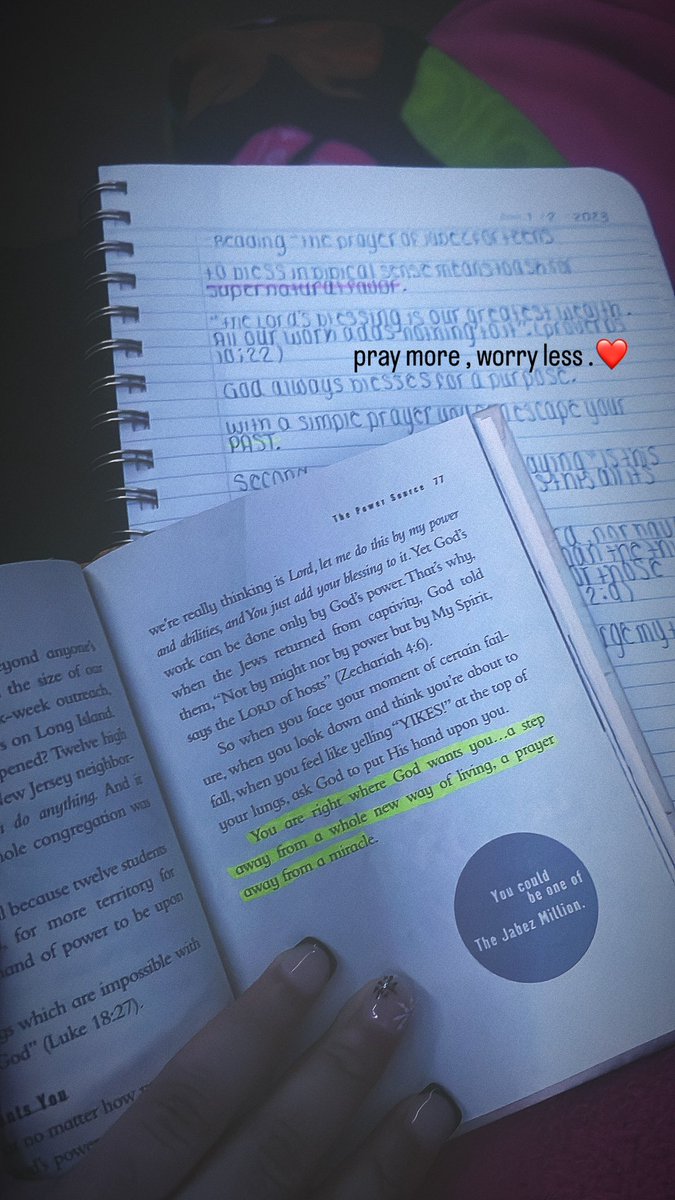 1/2 2023
Reading "the prayer of Jabez for teens
to bless in biblical sense means to ask for
supernatural favor.
"The Lord's blessing is our greatest wealth.
All our work adds nothing to it" (proverbs
10:22)
pray more , worry less .❤️
God always blesses for a purpose.
with a simple prayer you escape your
PAST.
The Power Source 77
we're really thinking is Lord, let me do this by my power
and abilities, and You just add your blessing to it. Yet God's
work can be done only by God's power. That's why,
when the Jews returned from captivity, God told
them, "Not by might nor by power but by My Spirit,
says the LORD of hosts" (Zechariah 4:6).
So when you face your moment of certain fail-
ure, when you look down and think you're about to
fall, when you feel like yelling "YIKES!" at the top of
your lungs, ask God to put His hand upon you.
You are right where God wants you...a step
away from a whole new way of living, a prayer
away from a miracle.
You could
be one of
The Jabez Million.
eyond anyone's
the size of our
k-week outreach,
s on Long Island.
pened? Twelve high
New Jersey neighbor-
do anything. And it
ole congregation was
l because twelve students
for more territory for
hand of power to be upon
gs which are impossible with
God" (Luke 18:27).
nts You
or no matter how
d's power